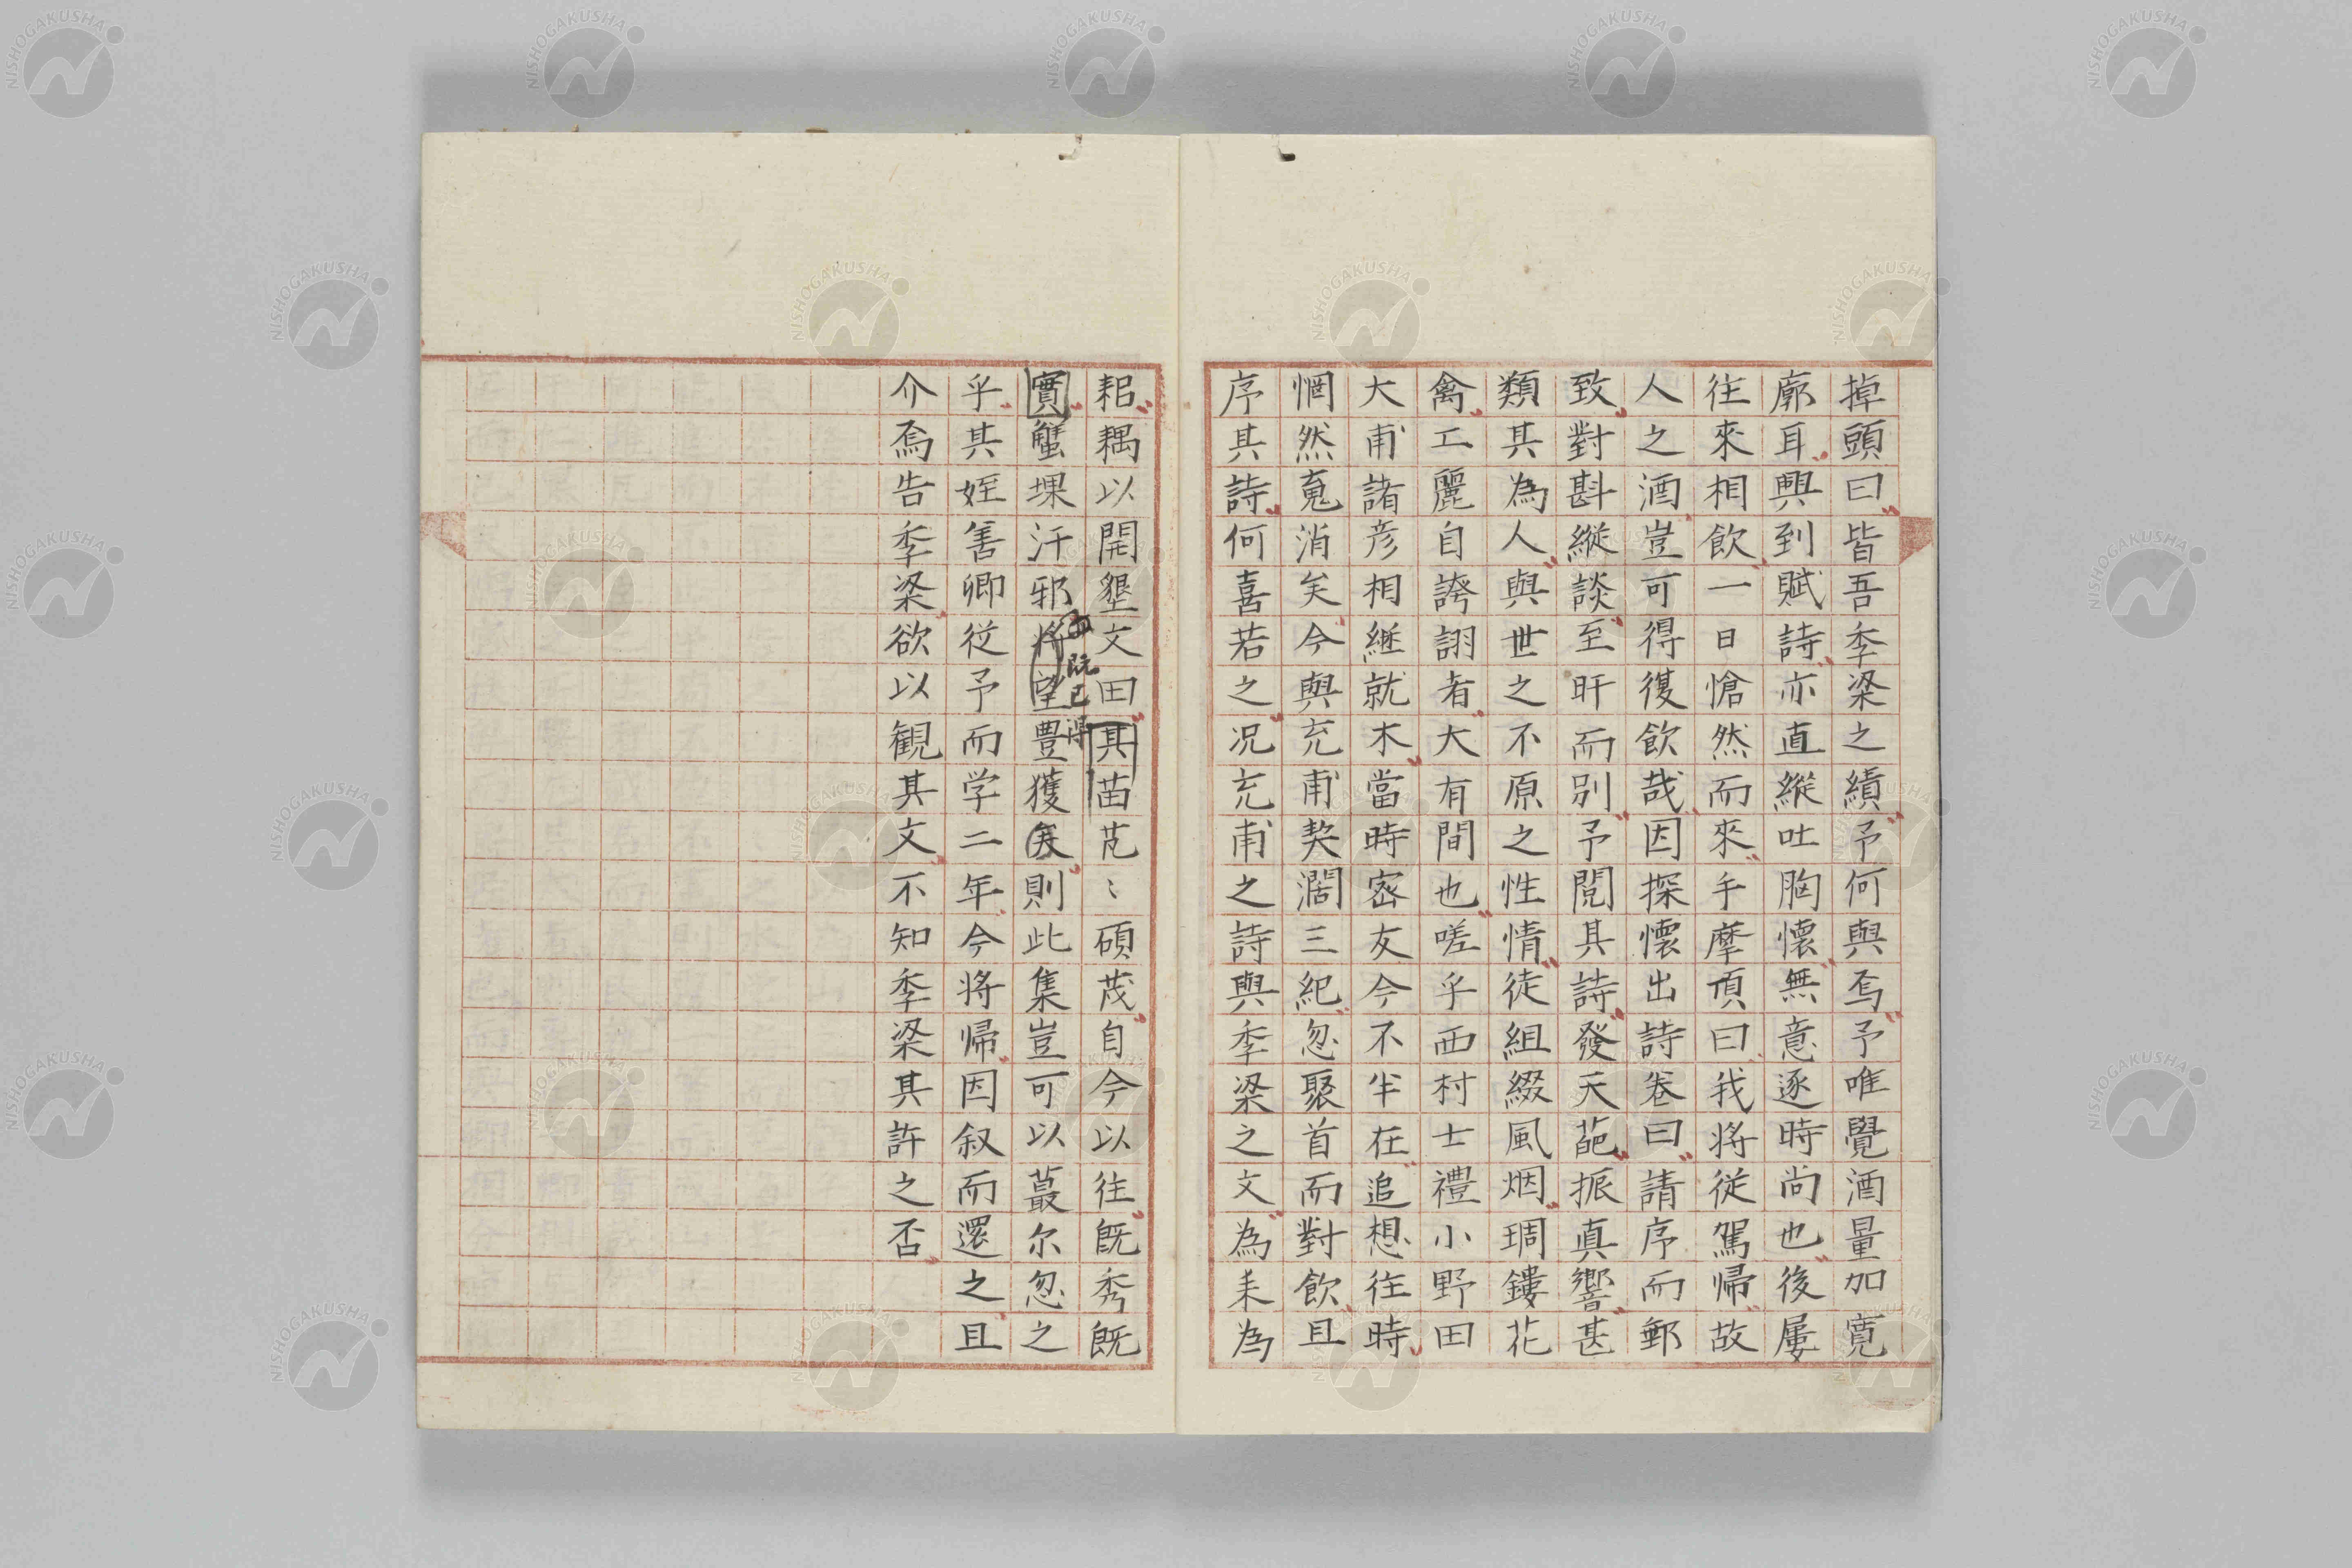 掉頭曰皆吾季梁之績予何與焉予唯覺酒量加寬
廓耳興到賦詩亦直縱吐胸懷無意逐時尚也後屢
往來相飲一日愴然而來手摩頂曰我將從駕帰故
人之酒豈可得復飲哉因探懷出詩卷曰請序而郵
致對斟縱談至旰而別予閲其詩發天葩振真響甚
類其為人與世之不原之性情徒組綴風烟琱鏤花
禽工麗自誇詡者大有間也嗟乎西村士禮小野田
大甫諸彦相継就木當時密友今不半在追想往時
惘然䰟消矣今與充甫契濶三紀忽聚首而對飲且
序其詩何喜若之况充甫之詩與季梁之文為耒為
耜耦以開墾文田其苗芃〻碩茂自今以往既秀既
實蟹堁汙邪将望豊獲矣則此集豈可以蕞尔忽之
而既已得
乎其姪善卿従予而学二年今将帰因叙而還之且
介焉告季梁欲以観其文不知季梁其許之否
NISHOGAKUSHA